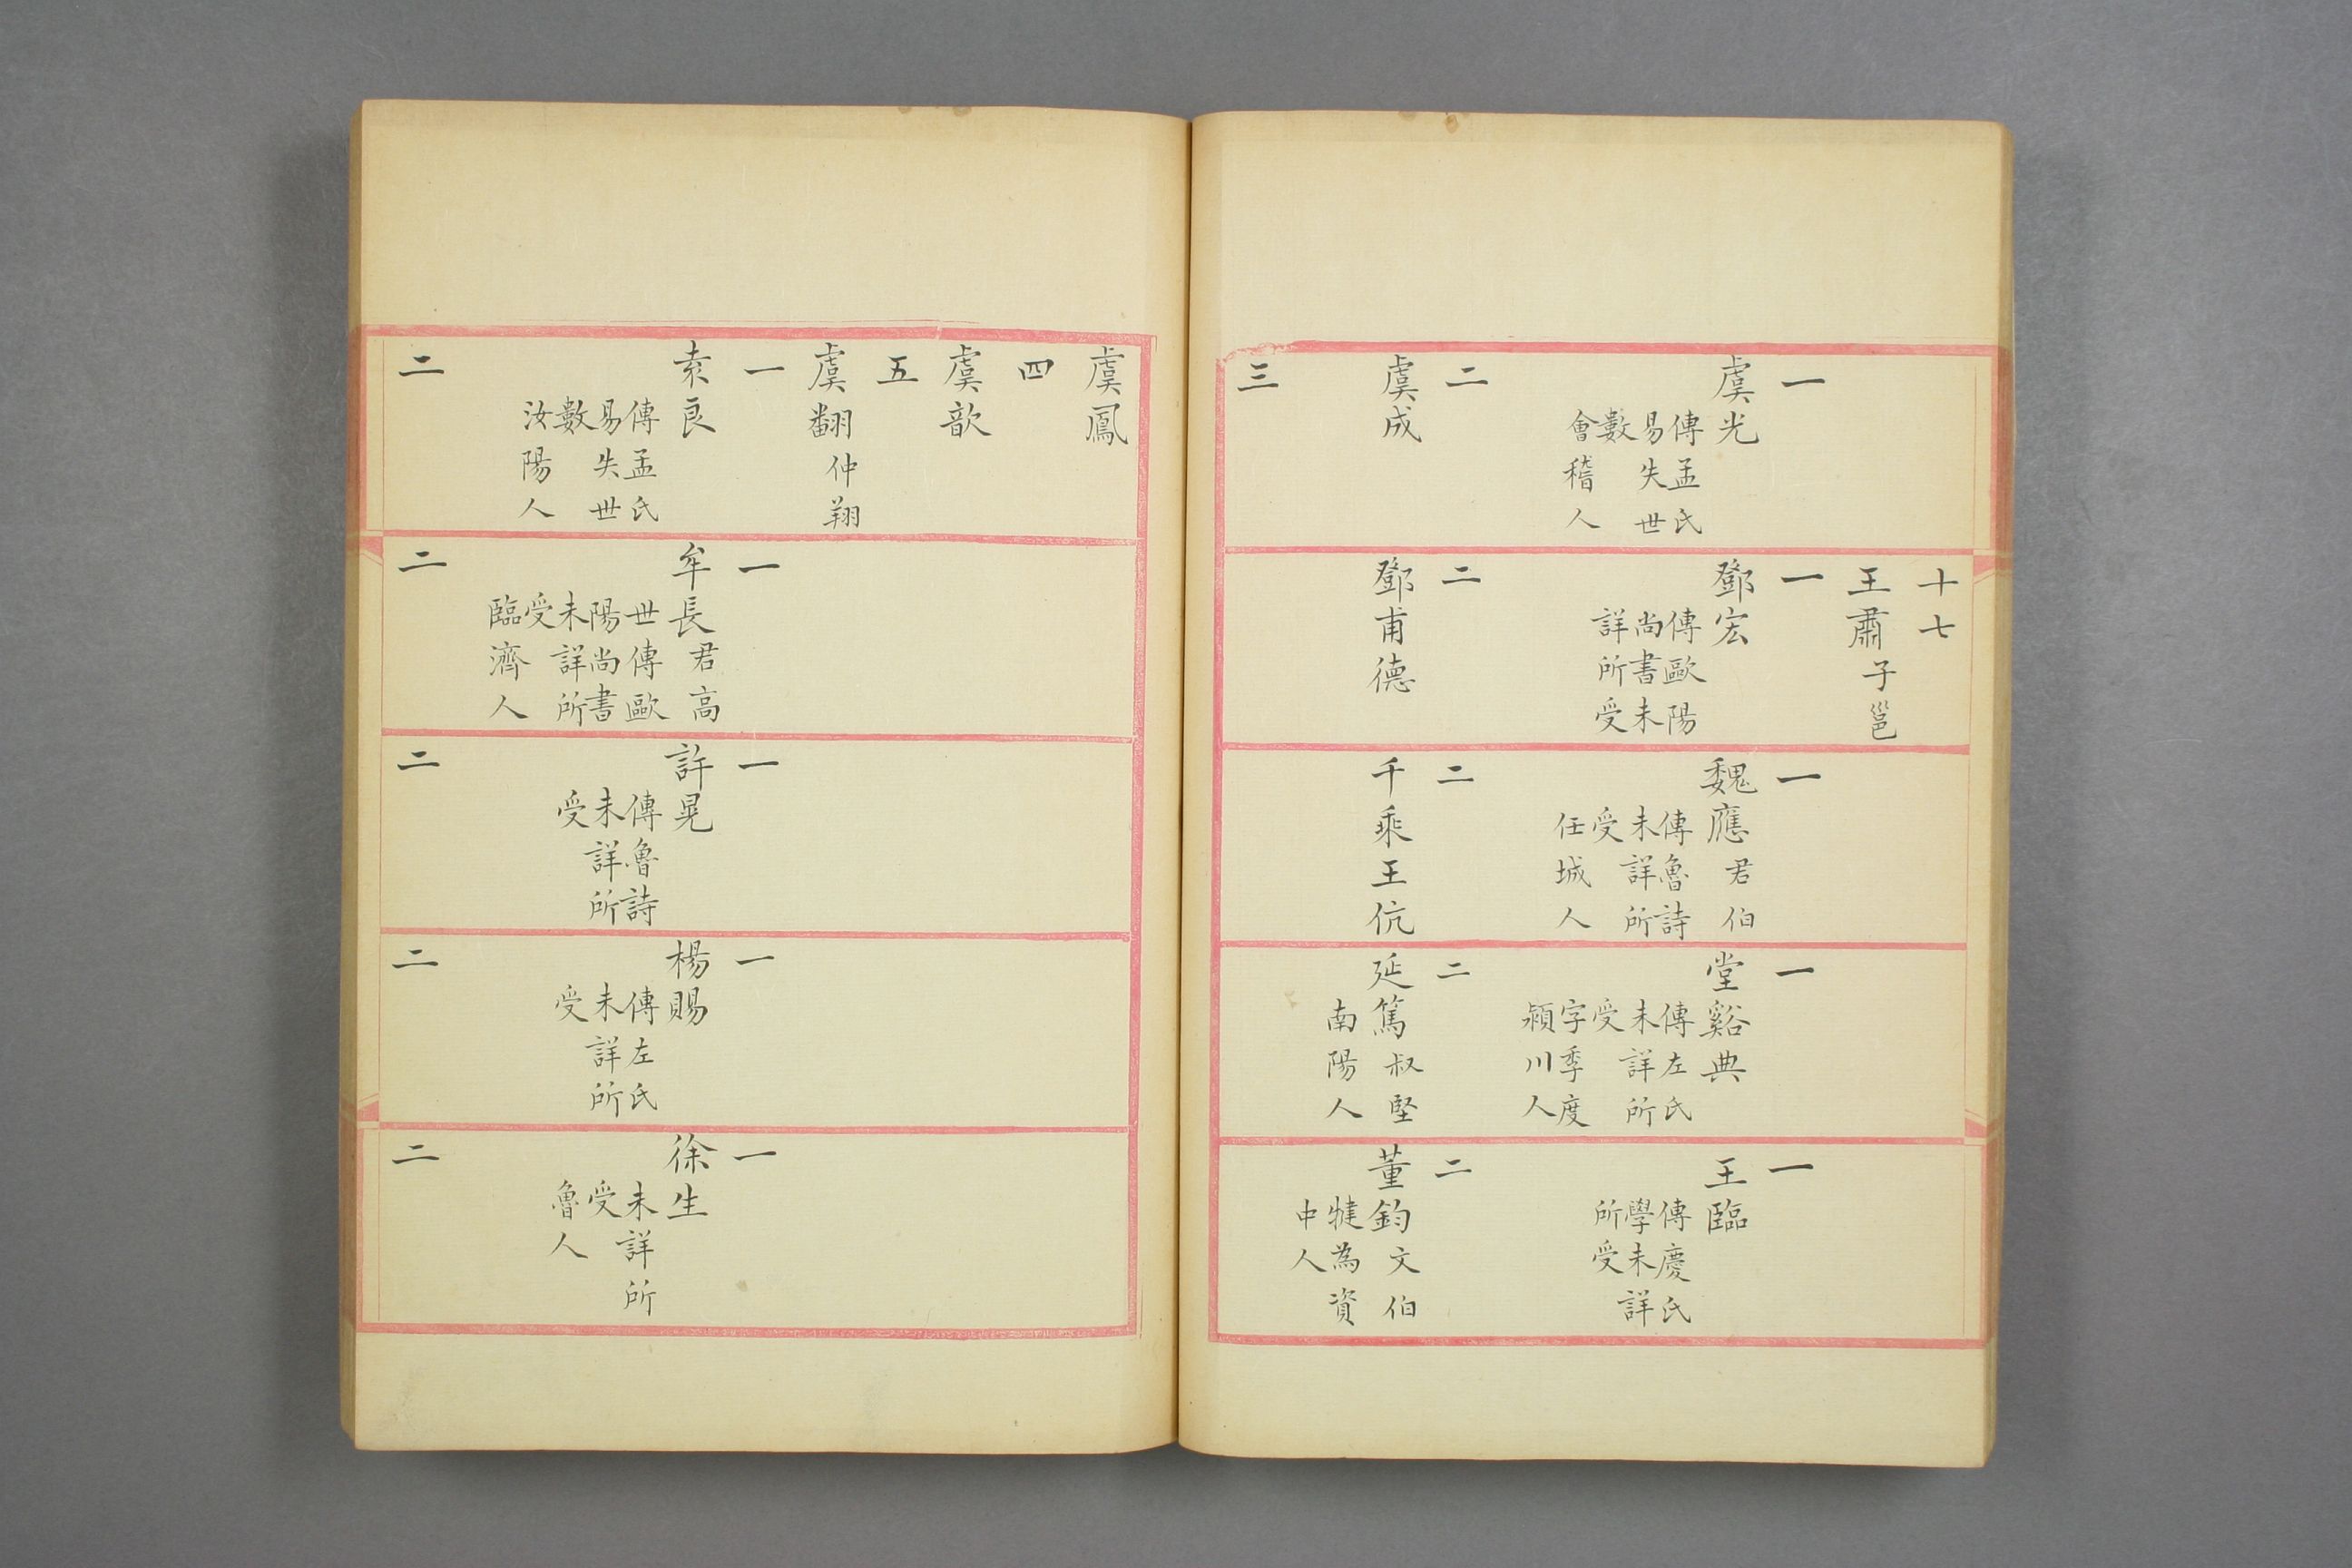 一
虞光
傳孟氏
易失世
數
會稽人
二
虞成
三
十七
王肅子邕
一
鄧宏
傳歐陽
尚書未
詳所受
二
鄧甫德
一
魏應君伯
傳魯詩
未詳所
受
任城人
二
千乘王伉
一
堂谿典
傳左氏
未詳所
受
字季度
潁川人
二
延篤叔堅
南陽人
一
王臨
傳慶氏
學未詳
所受
二
董鈞文伯
犍為資
中人
虞鳳
四
虞歆
五
虞翻仲翔
一
袁良
傳孟氏
易失世
數
汝陽人
二
一
牟長君高
世傳歐
陽尚書
未詳所
受
臨濟人
二
一
許晃
傳魯詩
未詳所
受
二
一
楊賜
傳左氏
未詳所
受
二
一
徐生
未詳所
受
魯人
二